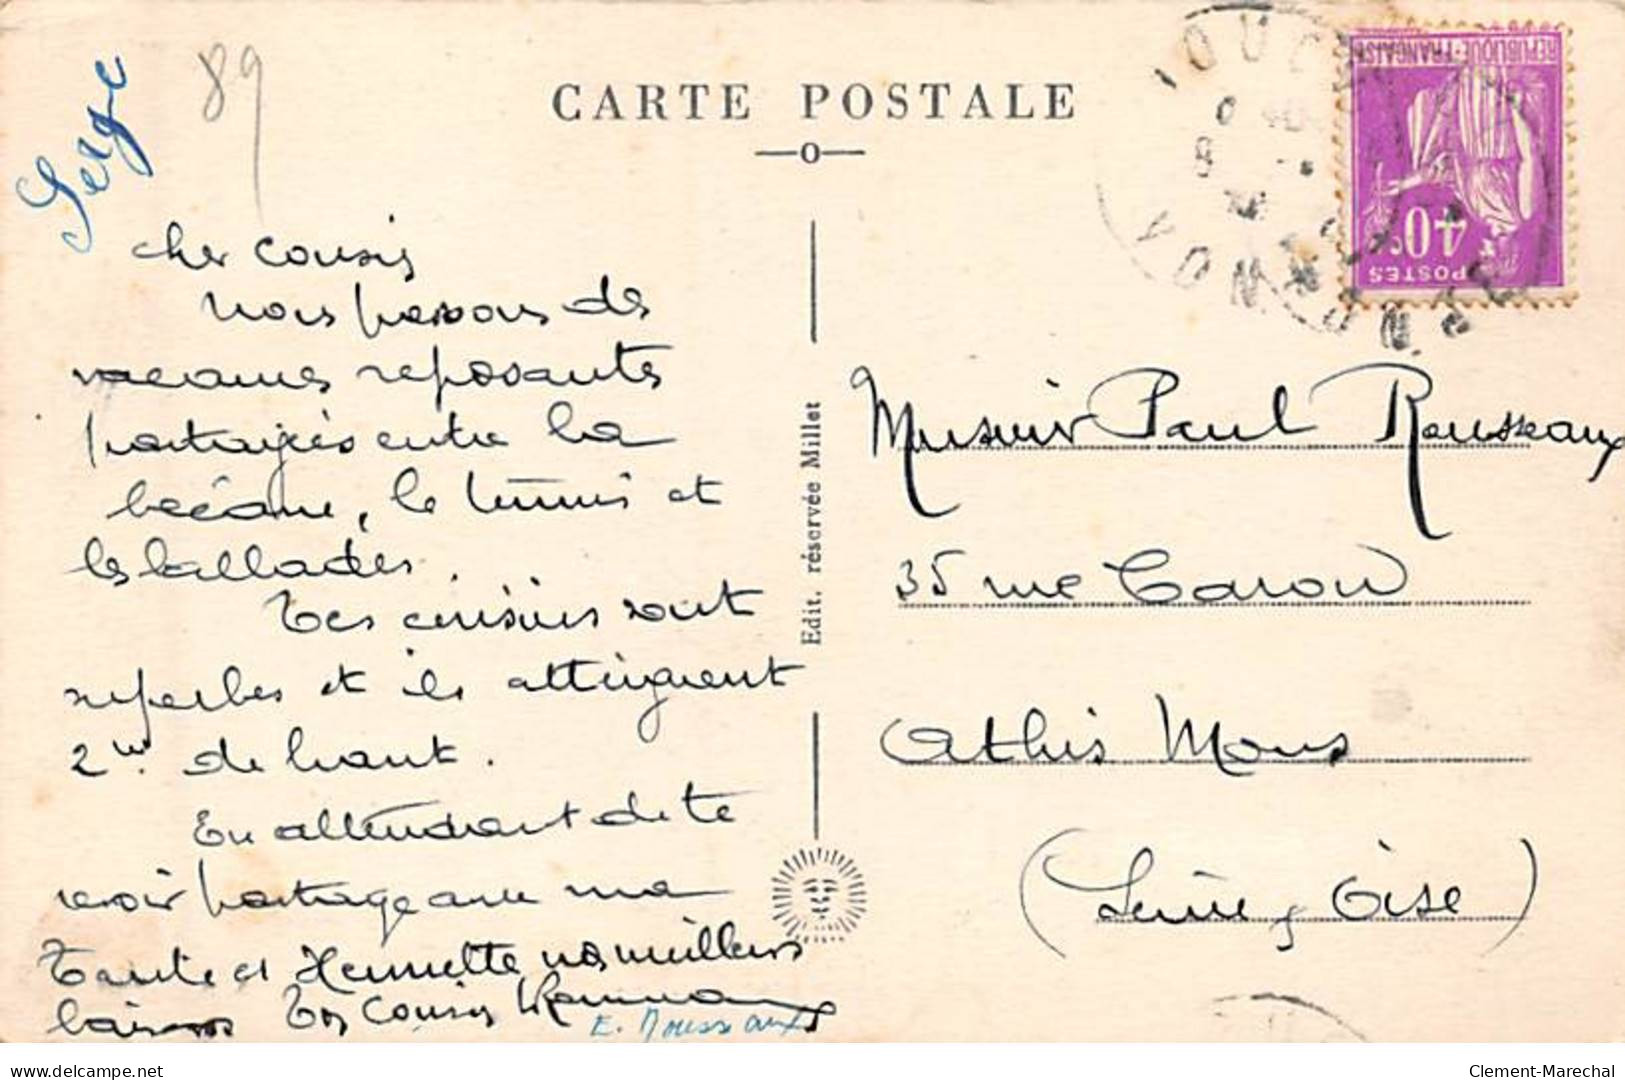 Serge
89
CARTE POSTALE
REPUBLIQUE FRANÇAISE
40c
POSTES
YONNE
cher cousin
Nous passons des
vacances reposantes
partagées entre la
bécane, le tennis et
les ballades.
Tes cousins sont
superbes et ils atteignent
2 m. de haut.
En attendant de te
revoir partage avec ma
Tante et Henriette nos meilleurs
baisers Tes Cousins
E. Rousseaux
Edit. réservée Millet
Monsieur Paul Rousseaux
35 rue Caron
Athis Mons
(Seine & Oise)
delcampe.net
Clement-Marechal